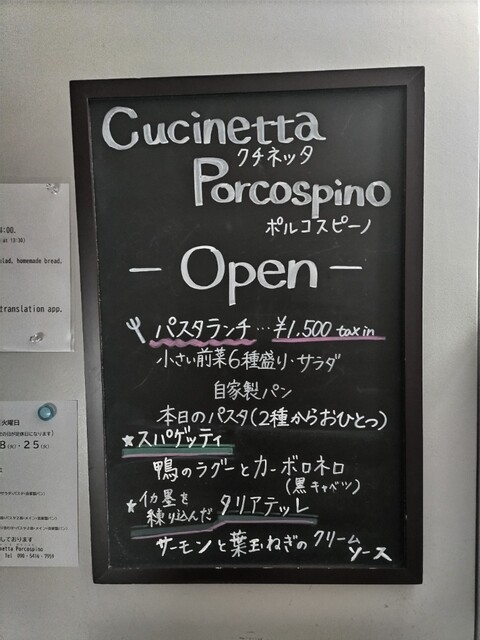 Cucinetta
クチネッタ
Porcospino
ポルコスピーノ
- Open -
パスタランチ…¥1.500 tax in
小さい前菜6種盛り・サラダ
自家製パン
本日のパスタ(2種からおひとつ)
★スパゲッティ
鴨のラグーとカーボロネロ
(黒キャベツ)
★イカ墨を
練り込んだ タリアテッレ
サーモンと葉玉ねぎのクリーム
ソース
4:00.
at 13:30)
lad, homemade bread.
translation app.
火曜日
8(火)・25(火)
netta Porcospino
Tel 090-5416-3959